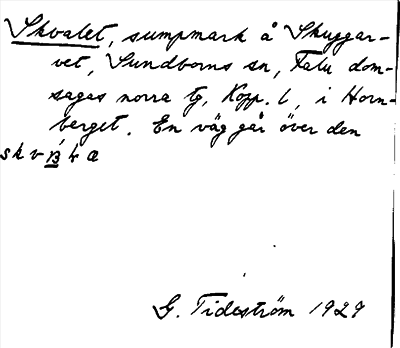 Skvalet, sumpmark å Skuggar-
vet, Sundborns sn, Falu dom-
sagas norra tg, Kopp. l, i Horn-
berget. En väg går över den
G. Tideström 1929